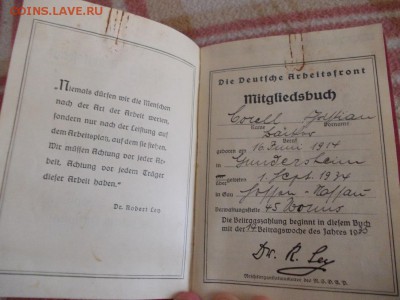 COINS.LAVE.RU
„Niemals dürfen wir die Menschen
nach der Art der Arbeit werten,
sondern nur nach der Leistung auf
dem Arbeitsplan, auf dem sie stehen.
Wir müssen Achtung vor jeder Ar-
beit, Achtung vor jedem Träger
dieser Arbeit haben."
Dr. Robert Ley
Die Deutsche Arbeitsfront
Mitgliedsbuch
Corell
Name
Vorname
Beruf
geboren am 16. Juni 1914
in Gundersheim
eingetreten 1. Sept. 1934
in Gau Hessen-Nassau
Verwaltungsstelle 45 Worms
Die Beitragszahlung beginnt in diesem Buch
mit der 14. Beitragswoche des Jahres 1935
Dr. R. Ley